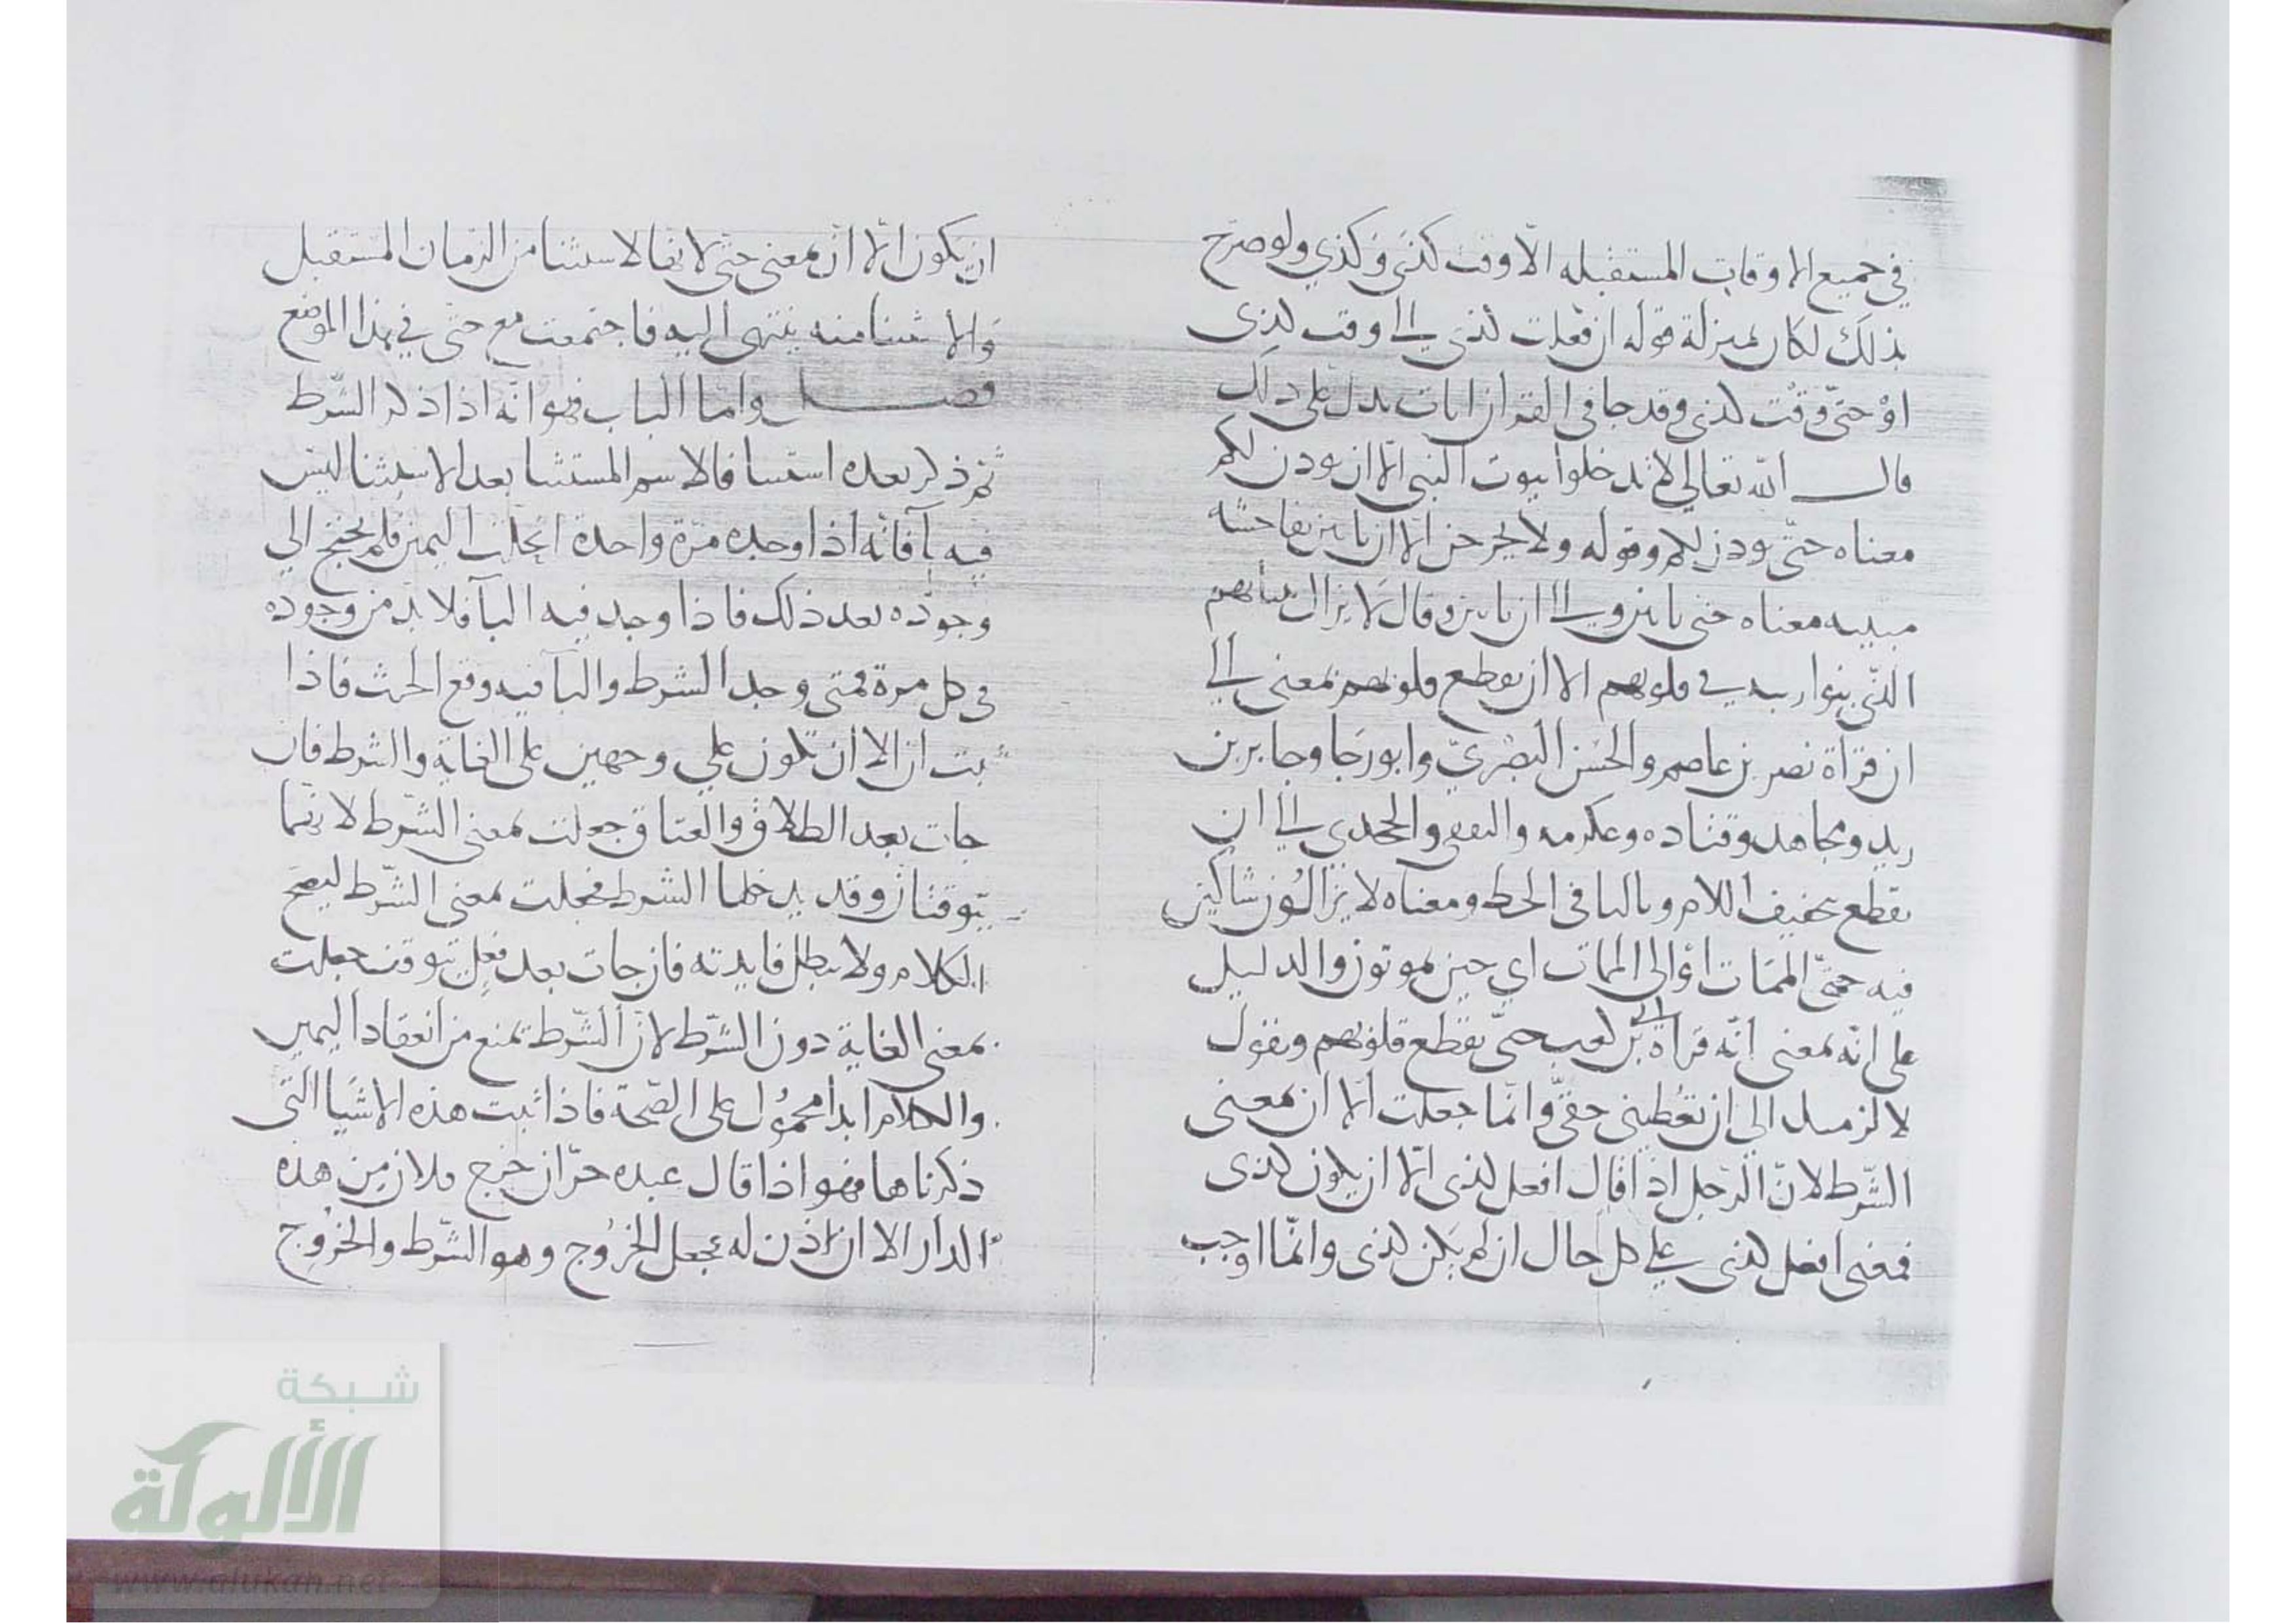 في جميع الاوقات المستقبله الّا وقت كذى وكذي ولو صرّح
بذلك لكان بمنزلة قوله ان فعلت كذى الى وقت كذى
اوْ حتّى وقت كذى وقد جا فى القران ايات يدل على ذلك
قال الله تعالي لا تدخلوا بيوت النبى الّا ان يوذن لكم
معناه حتّى يوذن لكم وقوله ولا يخرجن الّا ان ياتين بفاحشه
مبينه معناه حتى ياتين والى ان ياتين وقال لا يزال بنيانهم
الذّى بنوا ريبه في قلوبهم الا ان تقطع قلوبهم بمعنى الى
ان قرأة نصر بن عاصم والحسن البصْريّ وابو رَجا وجابر بن
زيد ومجاهد وقتاده وعكرمه والجحدري الى ان
تقطع بتخفيف اللام وبالتا فى الخط ومعناه لا يزالوُن شاكين
فيه حتّى الممَات اؤ الى الممات اي حين يموتون والدليل
على انّه بمعنى انّه قرأة ابى بن كعب حتّى تقطع قلوبهم ونقول
لا لزمنك الي ان تعُطينى حقّى وانّما جعلت الّا ان بمعنى
الشّرط لانّ الرّجل اذا قال افعل كذى الّا ان يكون كذى
فمعنى افعل كذى على كل حال ان لم يَكن كذى وانّما اوجب
ان يكون الّا ان بمعنى حتّى لانها لاستثنا من الزمان المستقبل
والاستثنا منه ينتهى اليه فاجتمعت مع حتّى في هذا الموضع
فصل وامّا الباب فهو انّه اذا ذكر الشّرط
ثم ذكر بعده استثنا فالاسم المستثنا بعد الاستثنا ليس
فيه بآ فانّه اذا وجده مرّة واحدة انحلت اليمين فلم يحتج الي
وجوده بعد ذلك فاذا وجد فيه البآ فلا بد من وجوده
فى كل مرة فمتى وجد الشرط والبآ فيه وقع الحنث فاذا
ثبت ان الا ان تكون علي وجهين على الغاية والشرط فان
جات بعد الطلاق والعتاق جعلت بمعنى الشّرط لانّهما
يتوقتان وقد يدخلهما الشرط فجعلت بمعنى الشّرط ليصح
الكلام ولا يبطل فايدته فان جات بعد فعلٍ يتوقت جعلت
بمعنى الغاية دون الشّرط لانّ الشّرط يمنع من انعقاد اليمين
والكلام ابدا محموُل على الصّحة فاذا ثبت هذه الاشيَا التى
ذكرناها فهو اذا قال عبده حرّ ان خرج فلان من هذه
الدار الا ان اذن له فجعل الخروُج وهو الشّرط والخروج
شبكة
الألوكة
www.alukah.net